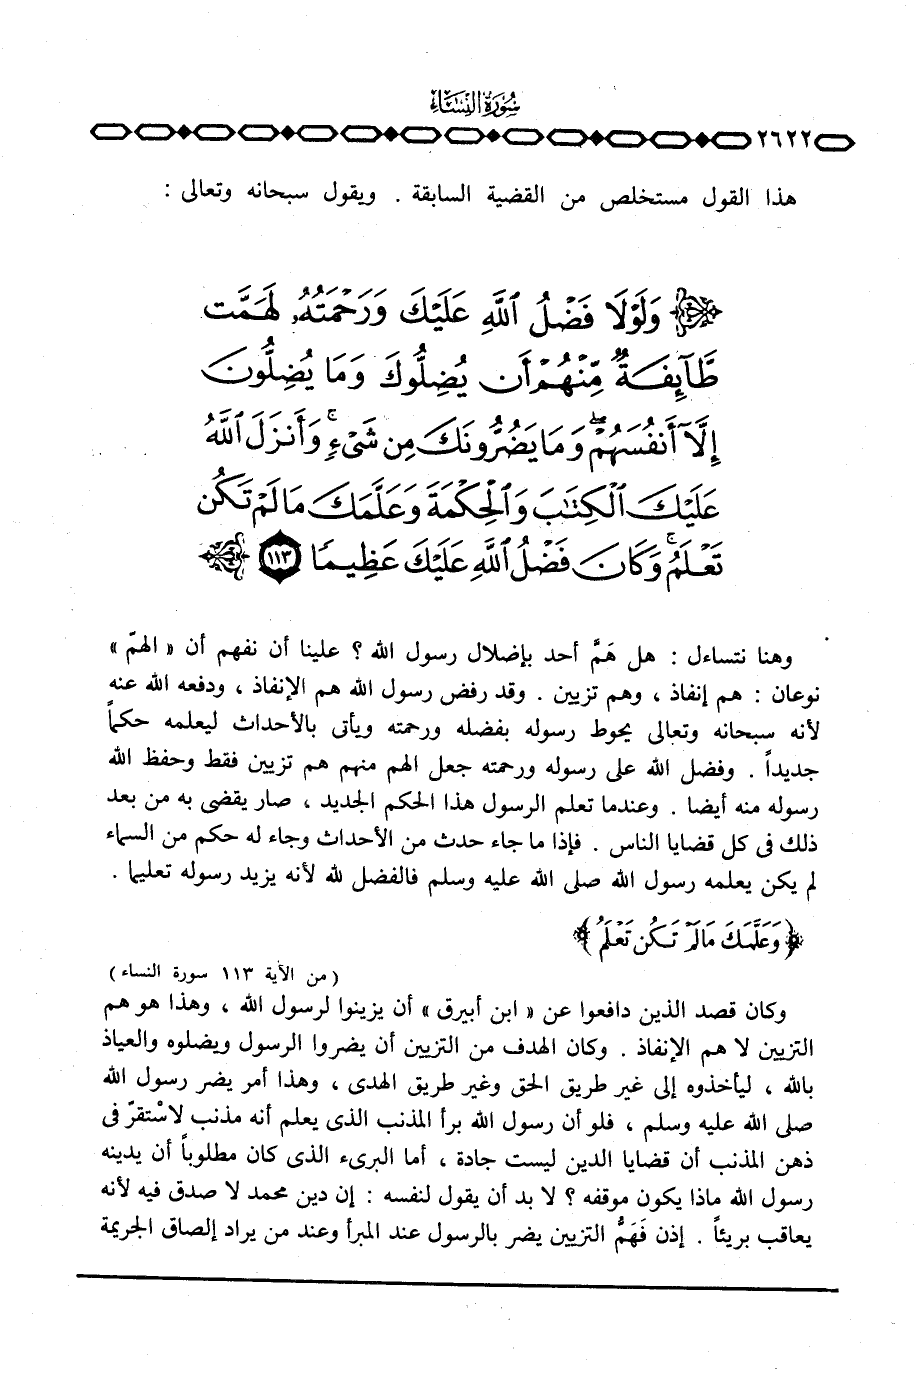 سُورَةُ النِّسَاءِ
٢٦٢٢
هذا القول مستخلص من القضية السابقة . ويقول سبحانه وتعالى :
وَلَوْلَا فَضْلُ ٱللَّهِ عَلَيْكَ وَرَحْمَتُهُۥ لَهَمَّت
طَّآئِفَةٌ مِّنْهُمْ أَن يُضِلُّوكَ وَمَا يُضِلُّونَ
إِلَّآ أَنفُسَهُمْ ۖ وَمَا يَضُرُّونَكَ مِن شَىْءٍ ۚ وَأَنزَلَ ٱللَّهُ
عَلَيْكَ ٱلْكِتَٰبَ وَٱلْحِكْمَةَ وَعَلَّمَكَ مَا لَمْ تَكُن
تَعْلَمُ ۚ وَكَانَ فَضْلُ ٱللَّهِ عَلَيْكَ عَظِيمًا ١١٣
وهنا نتساءل : هل هَمَّ أحد بإضلال رسول الله ؟ علينا أن نفهم أن « الهمّ »
نوعان : هم إنفاذ ، وهم تزيين . وقد رفض رسول الله هم الإنفاذ ، ودفعه الله عنه
لأنه سبحانه وتعالى يحوط رسوله بفضله ورحمته ويأتى بالأحداث ليعلمه حكماً
جديداً . وفضل الله على رسوله ورحمته جعل الهم منهم هم تزيين فقط وحفظ الله
رسوله منه أيضا . وعندما تعلم الرسول هذا الحكم الجديد ، صار يقضى به من بعد
ذلك فى كل قضايا الناس . فإذا ما جاء حدث من الأحداث وجاء له حكم من السماء
لم يكن يعلمه رسول الله صلى الله عليه وسلم فالفضل لله لأنه يزيد رسوله تعليما .
﴿ وَعَلَّمَكَ مَا لَمْ تَكُن تَعْلَمُ ﴾
( من الآية ١١٣ سورة النساء )
وكان قصد الذين دافعوا عن « ابن أبيرق » أن يزينوا لرسول الله ، وهذا هو هم
التزيين لا هم الإنفاذ . وكان الهدف من التزيين أن يضروا الرسول ويضلوه والعياذ
بالله ، ليأخذوه إلى غير طريق الحق وغير طريق الهدى ، وهذا أمر يضر رسول الله
صلى الله عليه وسلم ، فلو أن رسول الله برأ المذنب الذى يعلم أنه مذنب لاسْتقرّ فى
ذهن المذنب أن قضايا الدين ليست جادة ، أما البرىء الذى كان مطلوباً أن يدينه
رسول الله ماذا يكون موقفه ؟ لا بد أن يقول لنفسه : إن دين محمد لا صدق فيه لأنه
يعاقب بريئاً . إذن فَهَمُّ التزيين يضر بالرسول عند المبرأ وعند من يراد إلصاق الجريمة